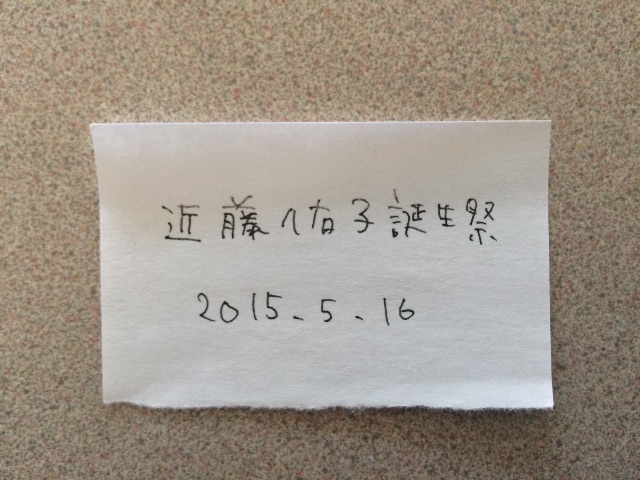 近藤佑子誕生祭
2015.5.16